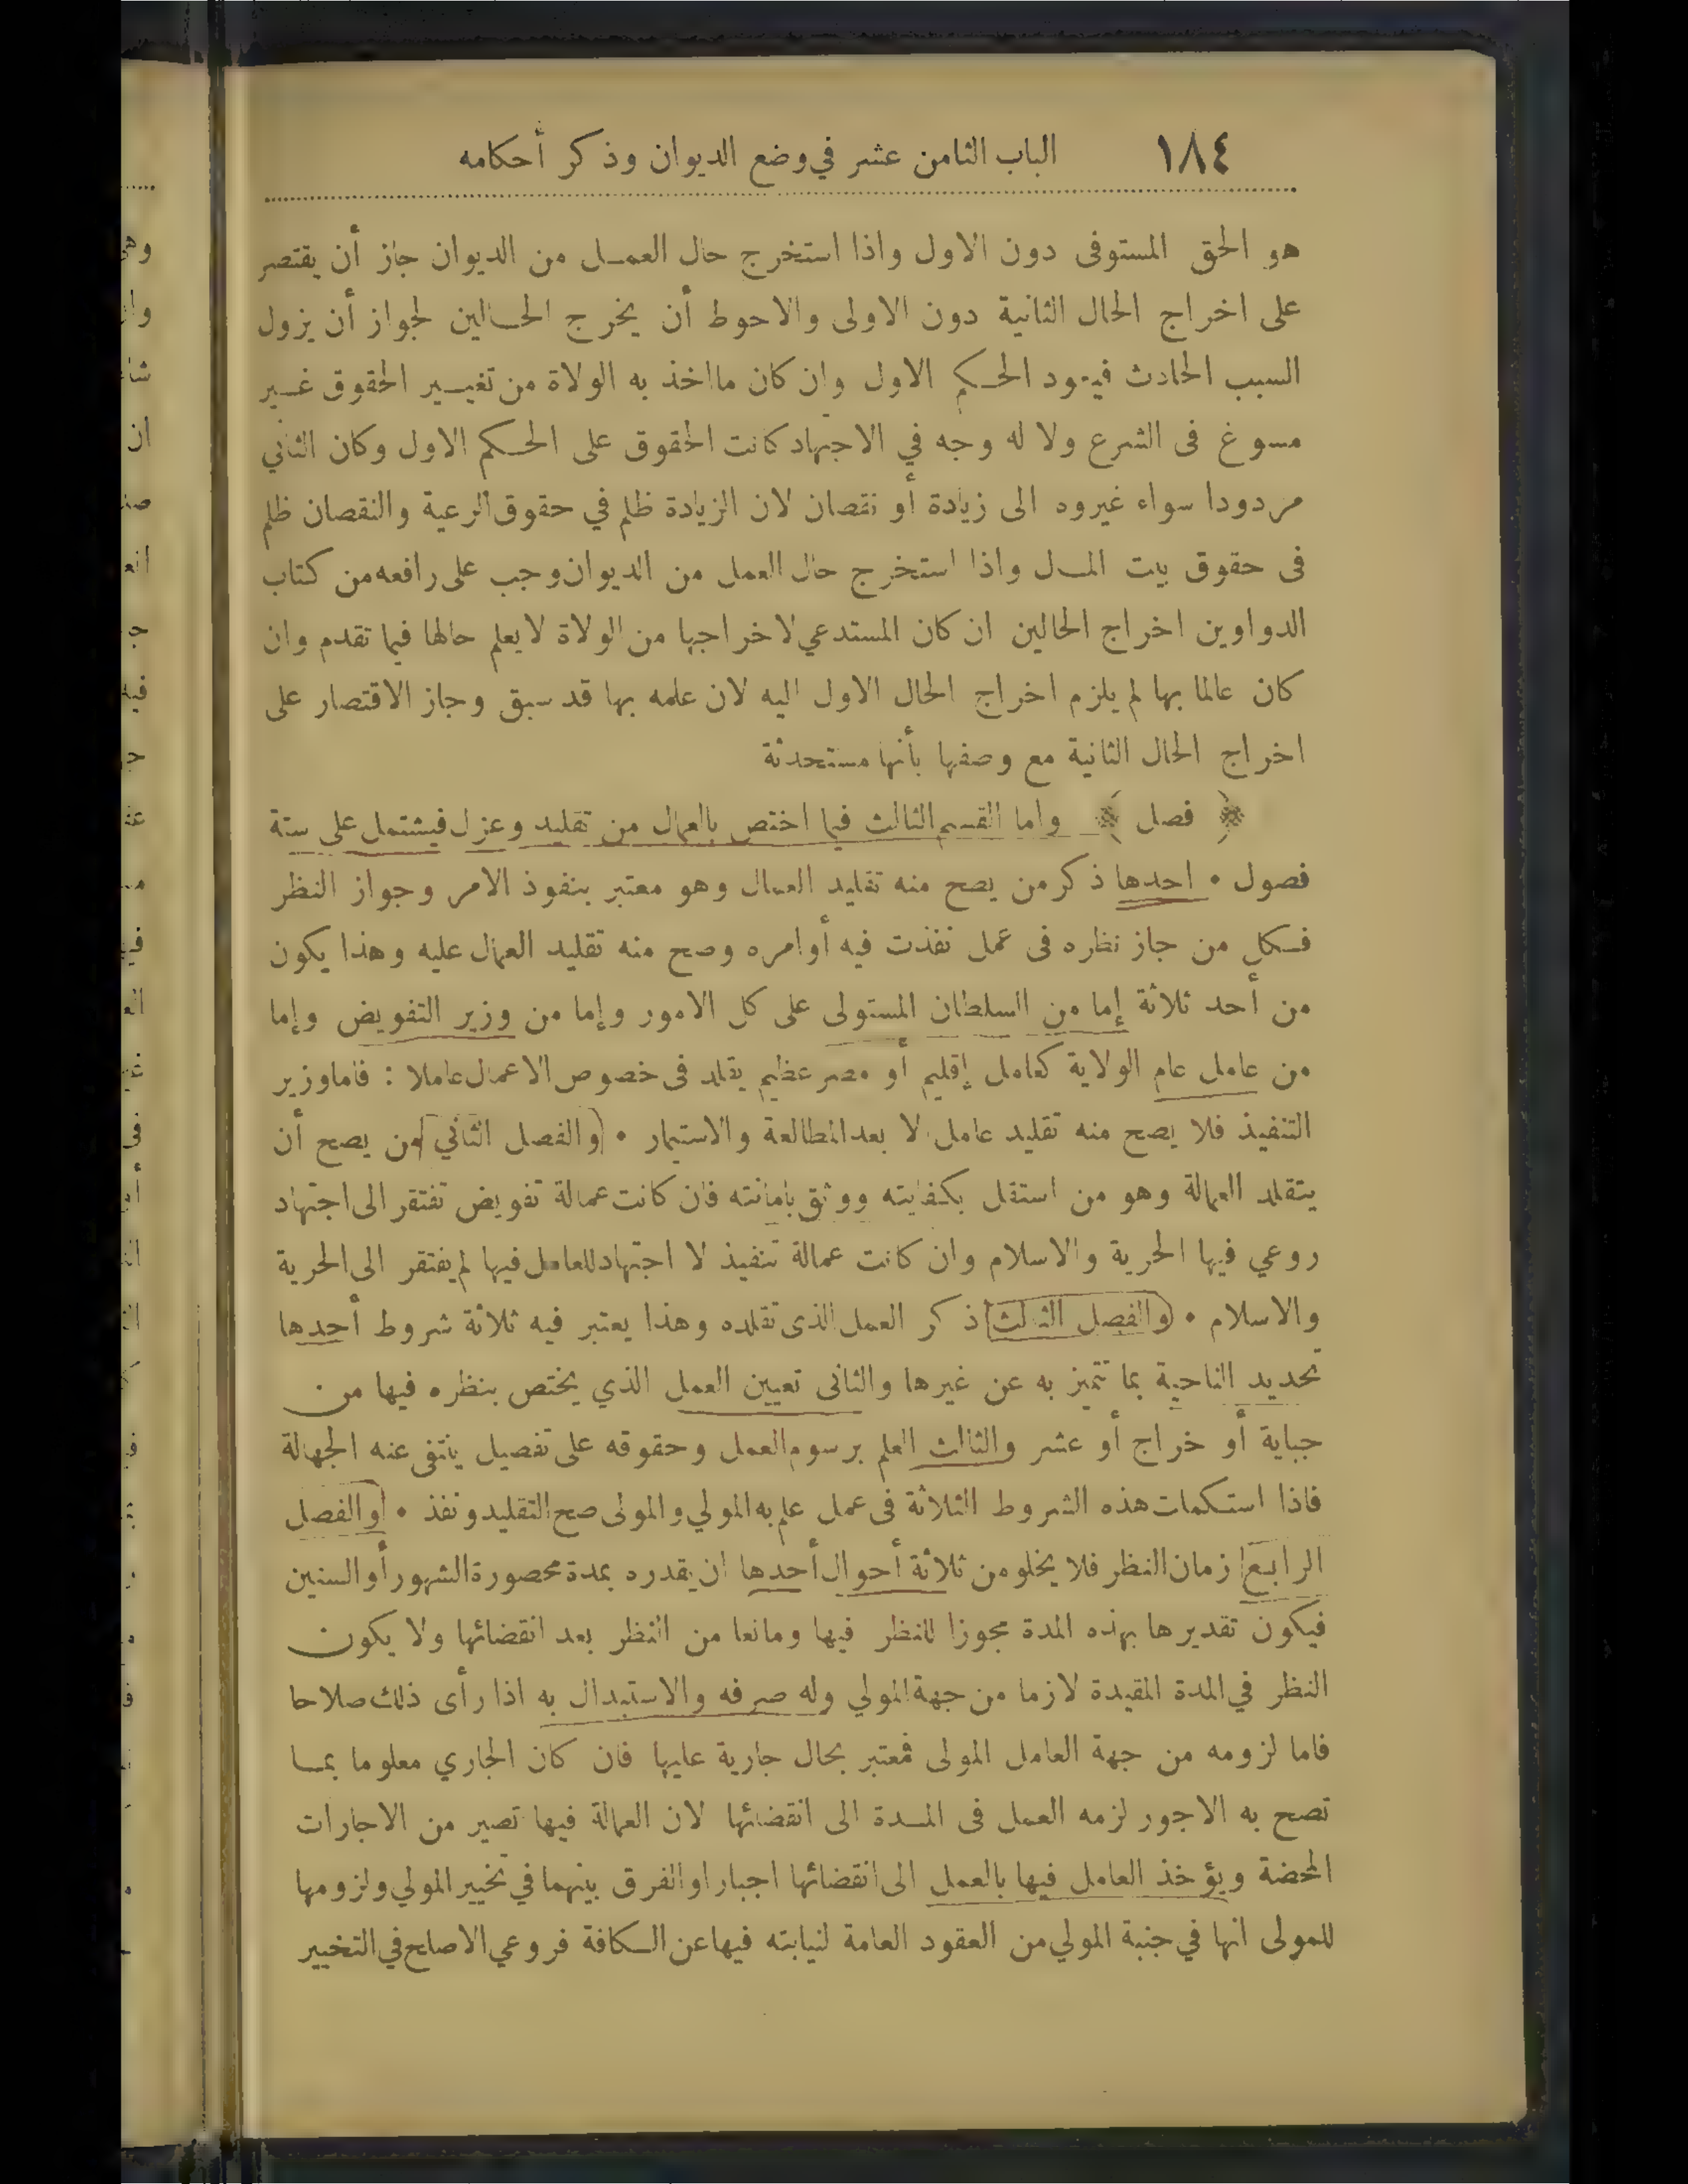 ١٨٤ الباب الثامن عشر في وضع الديوان وذكر أحكامه
هو الحق المستوفى دون الاول واذا استخرج حال العمل من الديوان جاز أن يقتصر
على اخراج الحال الثانية دون الاولى والاحوط أن يخرج الحالين لجواز أن يزول
السبب الحادث فيعود الحكم الاول وان كان مااخذ به الولاة من تغيير الحقوق غير
مسوغ فى الشرع ولا له وجه في الاجتهاد كانت الحقوق على الحكم الاول وكان الثاني
مردودا سواء غيروه الى زيادة أو نقصان لان الزيادة ظلم في حقوق الرعية والنقصان ظلم
فى حقوق بيت المال واذا استخرج حال العمل من الديوان وجب على رافعه من كتاب
الدواوين اخراج الحالين ان كان المستدعي لاخراجها من الولاة لا يعلم حالها فيما تقدم وان
كان عالما بها لم يلزم اخراج الحال الاول اليه لان علمه بها قد سبق وجاز الاقتصار على
اخراج الحال الثانية مع وصفها بأنها مستحدثة
﴿ فصل ﴾ واما القسم الثالث فيما اختص بالعمال من تقليد وعزل فيشتمل على ستة
فصول • احدها ذكر من يصح منه تقليد العمال وهو معتبر بنفوذ الامر وجواز النظر
فكل من جاز نظره فى عمل نفذت فيه أوامره وصح منه تقليد العمال عليه وهذا يكون
من أحد ثلاثة إما من السلطان المستولى على كل الامور وإما من وزير التفويض وإما
من عامل عام الولاية كعامل إقليم أو مصر عظيم يقلد فى خصوص الاعمال عاملا : فاما وزير
التنفيذ فلا يصح منه تقليد عامل الا بعد المطالعة والاستيمار • (والفصل الثاني) من يصح أن
يتقلد العمالة وهو من استقل بكفايته ووثق بامانته فان كانت عمالة تفويض تفتقر الى اجتهاد
روعي فيها الحرية والاسلام وان كانت عمالة تنفيذ لا اجتهاد للعامل فيها لم يفتقر الى الحرية
والاسلام • (والفصل الثالث) ذكر العمل الذى تقلده وهذا يعتبر فيه ثلاثة شروط أحدها
تحديد الناحية بما تتميز به عن غيرها والثانى تعيين العمل الذي يختص بنظره فيها من
جباية أو خراج أو عشر والثالث العلم برسوم العمل وحقوقه على تفصيل ينتفى عنه الجهالة
فاذا استكملت هذه الشروط الثلاثة فى عمل علم به المولي والمولى صح التقليد ونفذ • (والفصل
الرابع) زمان النظر فلا يخلو من ثلاثة أحوال أحدها ان يقدره بمدة محصورة الشهور أو السنين
فيكون تقديرها بهذه المدة مجوزا للنظر فيها ومانعا من النظر بعد انقضائها ولا يكون
النظر في المدة المقيدة لازما من جهة المولي وله صرفه والاستبدال به اذا رأى ذلك صلاحا
فاما لزومه من جهة العامل المولى فمعتبر بحال جارية عليها فان كان الجاري معلوما بما
تصح به الاجور لزمه العمل فى المدة الى انقضائها لان العمالة فيها تصير من الاجارات
المحضة ويؤخذ العامل فيها بالعمل الى انقضائها اجبارا والفرق بينهما في تخيير المولي ولزومها
للمولى انها في جنبة المولي من العقود العامة لنيابته فيها عن الكافة فروعي الاصلح في التخيير